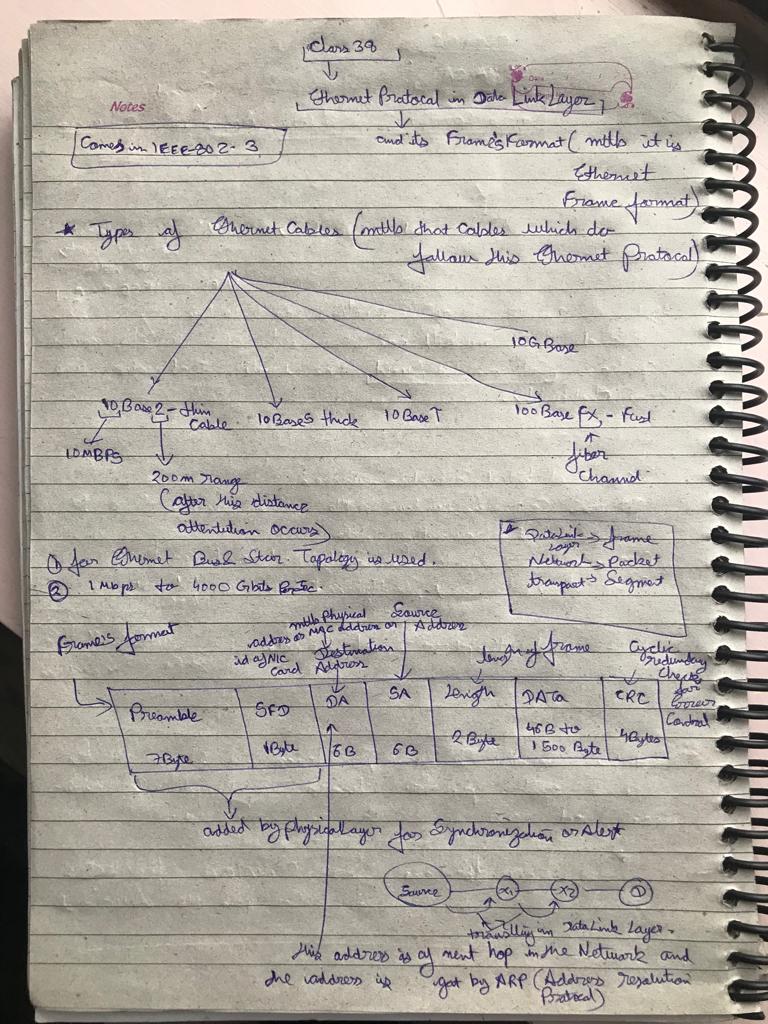 Class 38
Ethernet Protocol in Data Link Layer
Notes
Comes in IEEE-802-3
and its Frame's Format (mtlb it is
Ethernet
Frame format)
* Types of Ethernet Cables (mtlb that Cables which do
follow this Ethernet Protocol)
10G Base
10 Base 2 - thin
Cable
10 Base 5 thick
10 Base T
100 Base FX - Fast
10 MBPS
fiber
Channel
200m range
(after this distance
attentution occurs)
* Data Link Layer → frame
Network → Packet
transport → Segment
① for Ethernet Bus & Star Topology is used.
② 1 Mbps to 4000 Gbits
Frame's format
mtlb Physical
address or MAC address or
id of NIC
Card
Destination
Address
Source
Address
length of frame
Cyclic
redundancy
Check
for
Error
Control
Preamble SFD DA SA Length DATA CRC
7 Byte 1 Byte 6B 6B 2 Byte 46B to 1500 Byte 4 Bytes
added by Physical Layer for Synchronization or Alert
Source X1 X2 D
travelling in Data Link Layer.
this address is of next hop in the Network and
the address is got by ARP (Address resolution
Protocol)